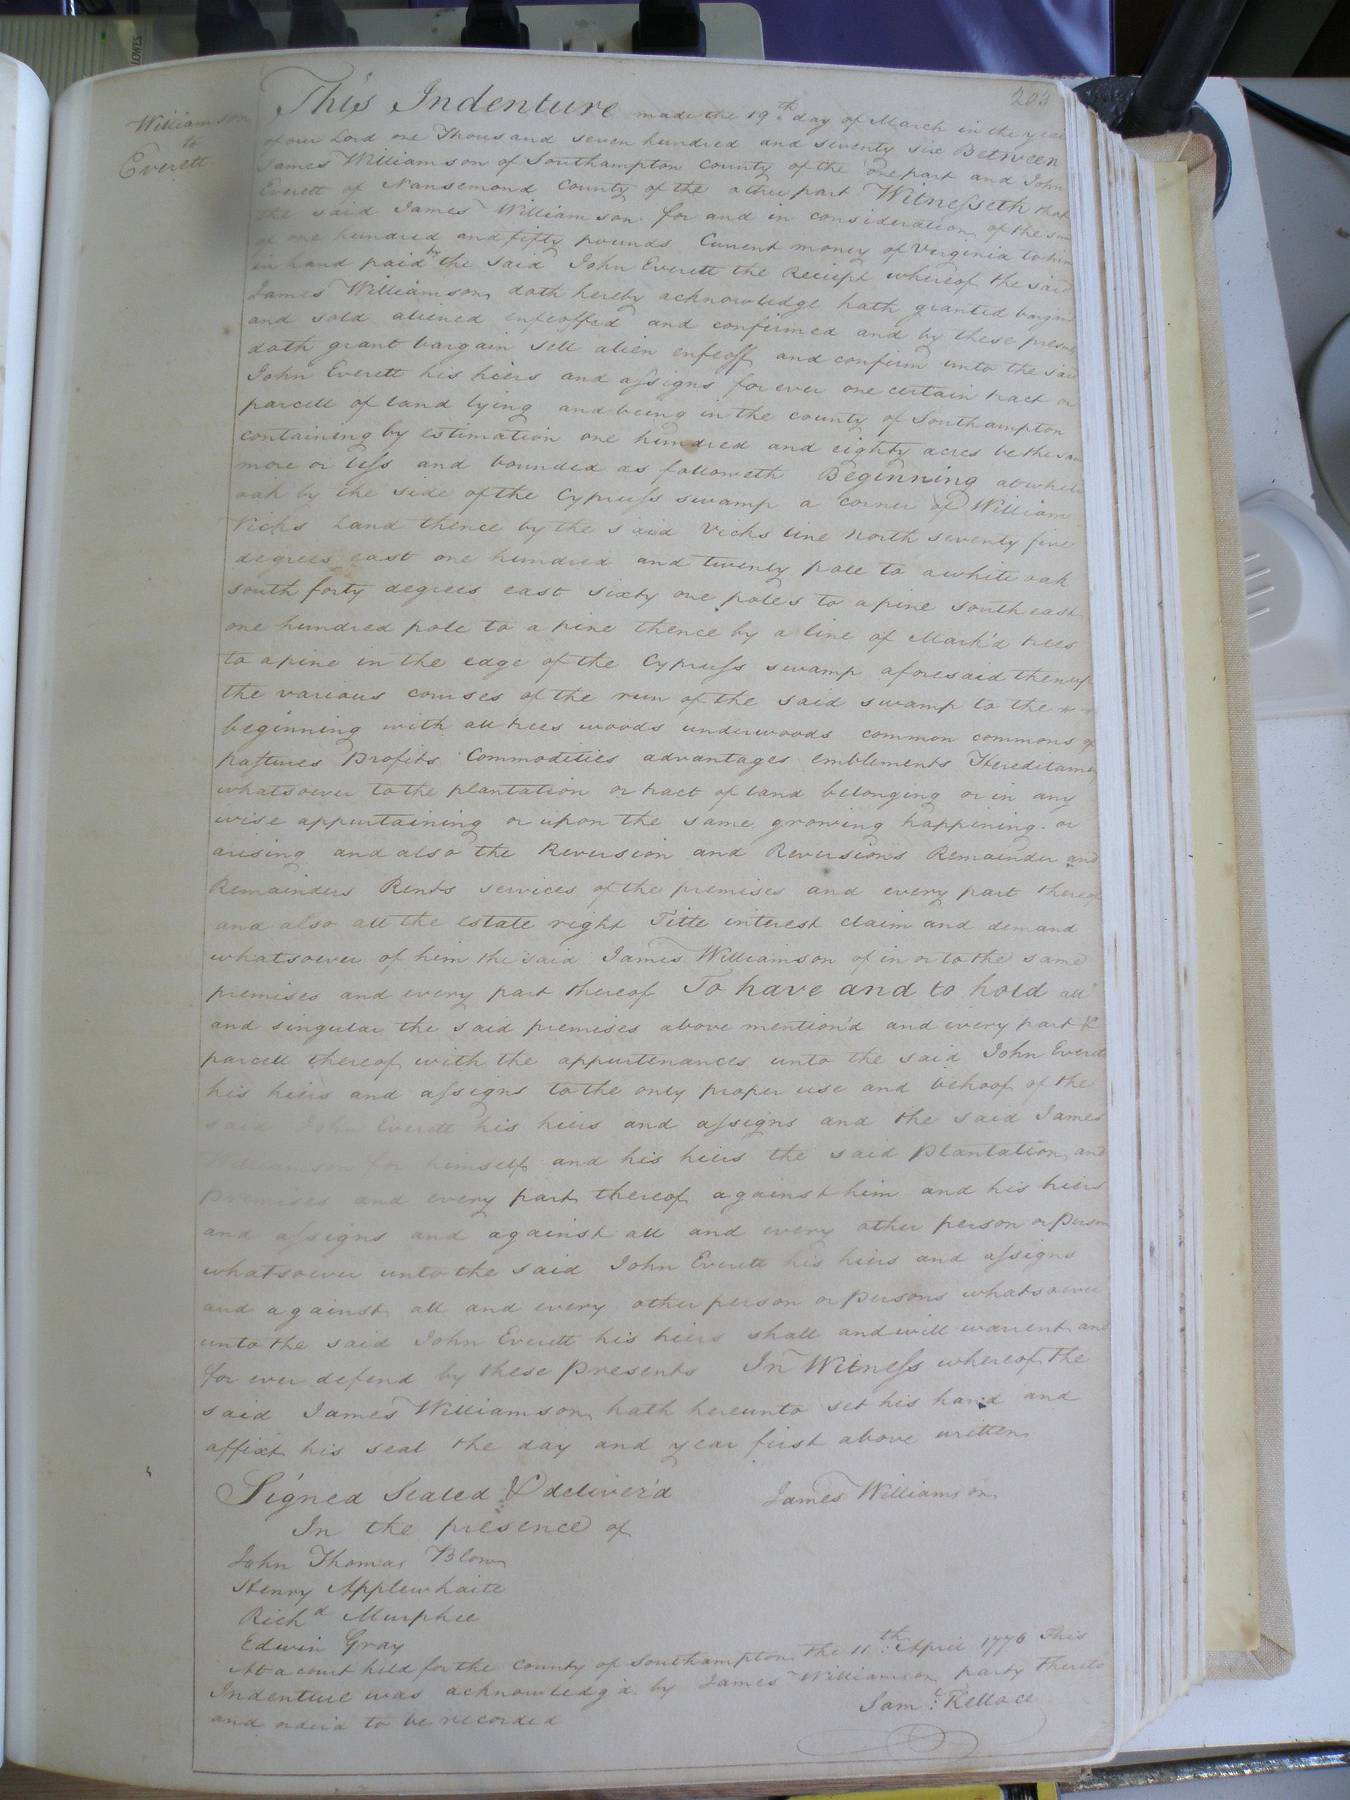 203
Williamson
to
Everett
This Indenture made the 19.th day of March in the year
of our Lord one Thousand seven hundred and seventy six Between
James Williamson of Southampton County of the one part and John
Everett of Nansemond County of the other part Witnesseth that
the said James Williamson for and in consideration of the sum
of one hundred and fifty pounds Current money of Virginia to him
in hand paid by the said John Everett the Receipt whereof the said
James Williamson doth hereby acknowledge hath granted bargain
and sold aliened enfeoffed and confirmed and by these presents
doth grant bargain sell alien enfeoff and confirm unto the said
John Everett his heirs and assigns for ever one certain tract or
parcell of land lying and being in the county of Southampton
containing by estimation one hundred and eighty acres be the same
more or less and bounded as followeth Beginning at a white
oak by the side of the Cypruss swamp a corner of William
Vicks Land thence by the said Vicks line North seventy five
degrees east one hundred and twenty pole to a white oak
south forty degrees east sixty one poles to a pine south east
one hundred pole to a pine thence by a line of Mark'd trees
to a pine in the edge of the Cypruss swamp aforesaid then up
the various courses of the run of the said swamp to the
beginning with all trees woods underwoods common commons of
pastures Profits Commodities advantages emblements Hereditaments
whatsoever to the plantation or tract of land belonging or in any
wise appurtaining or upon the same growing happining or
arising and also the Reversion and Reversions Remainder and
Remainders Rents services of the premises and every part thereof
and also all the estate right Title interest claim and demand
whatsoever of him the said James Williamson of in or to the same
premises and every part thereof To have and to hold all
and singular the said premises above mention'd and every part &
parcell thereof with the appurtenances unto the said John Everett
his heirs and assigns to the only proper use and behoof of the
said John Everett his heirs and assigns and the said James
Williamson for himself and his heirs the said Plantation and
Premises and every part thereof against him and his heirs
and assigns and against all and every other person or Person
whatsoever unto the said John Everett his heirs and assigns
and against all and every other person or Persons whatsoever
unto the said John Everett his heirs shall and will warrent and
for ever defend by these Presents In Witness whereof the
said James Williamson hath hereunto set his hand and
affixt his seal the day and year first above written
Signed Sealed & deliver'd James Williamson
In the presence of
John Thomas Blow
Henry Applewhaite
Rich.d Murphee
Edwin Gray
At a court held for the County of Southampton the 11.th April 1776 This
Indenture was acknowledg'd by James Williamson party thereto
and order'd to be recorded
Sam.l Kello cc